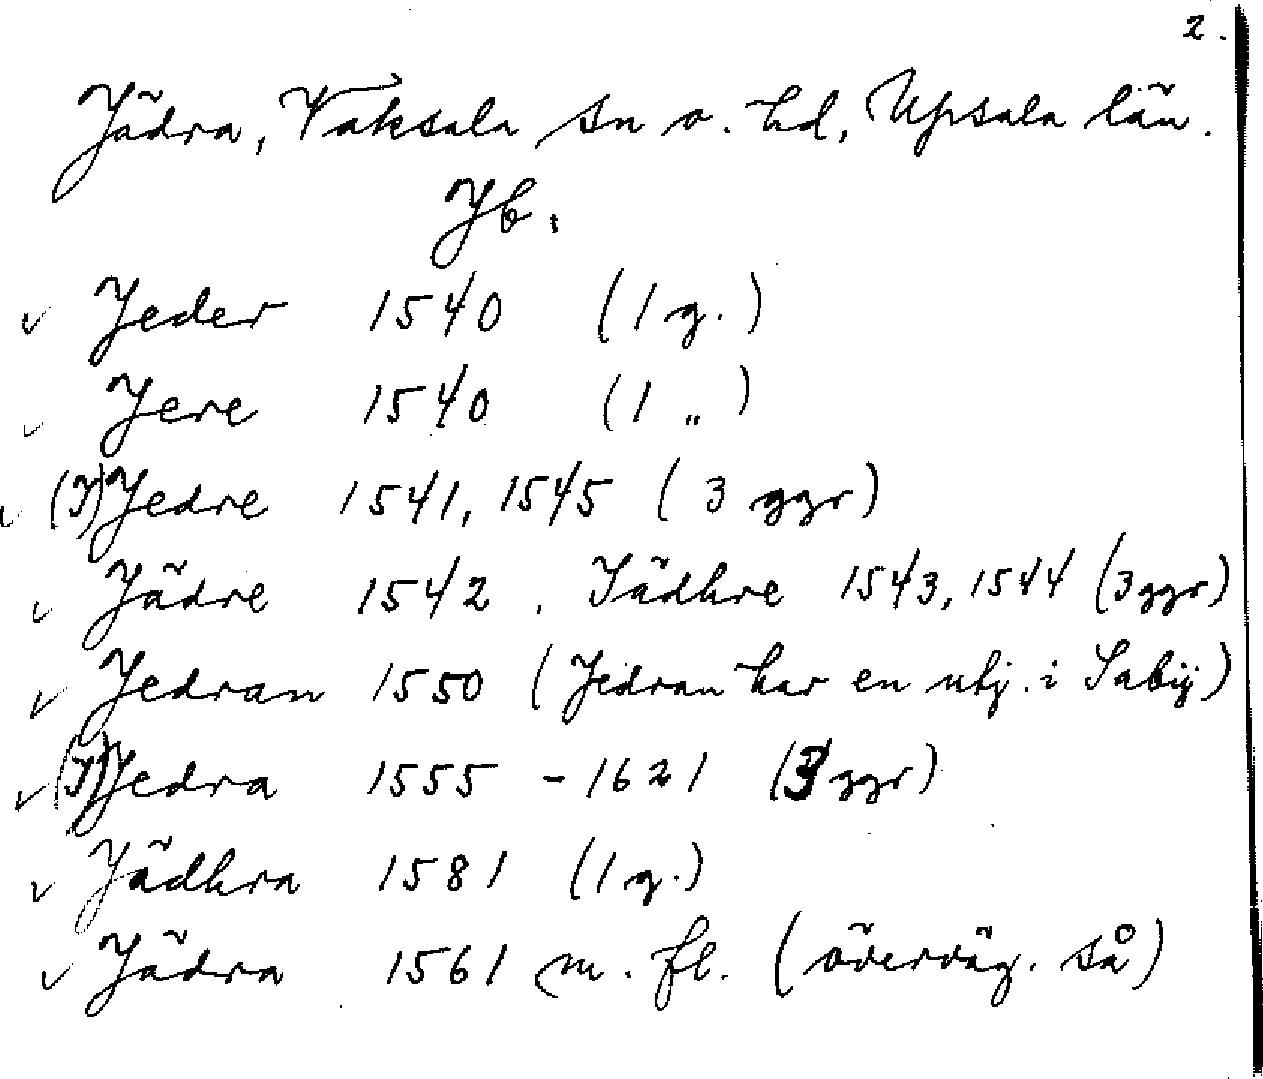 2.
Jädra, Vaksala sn o. hd, Upsala län.
Jb.
✓ Jeder 1540 (1 g.)
✓ Jere 1540 (1 „ )
✓ (J) Jedre 1541, 1545 ( 3 ggr)
✓ Jädre 1542 . Iädhre 1543, 1544 (3 ggr)
✓ Jedran 1550 (Jedran har en utj. i Sabÿ)
✓ (J) Jedra 1555 - 1621 (3 ggr)
✓ Jädhra 1581 (1 g.)
✓ Jädra 1561 m. fl. (överväg. så)